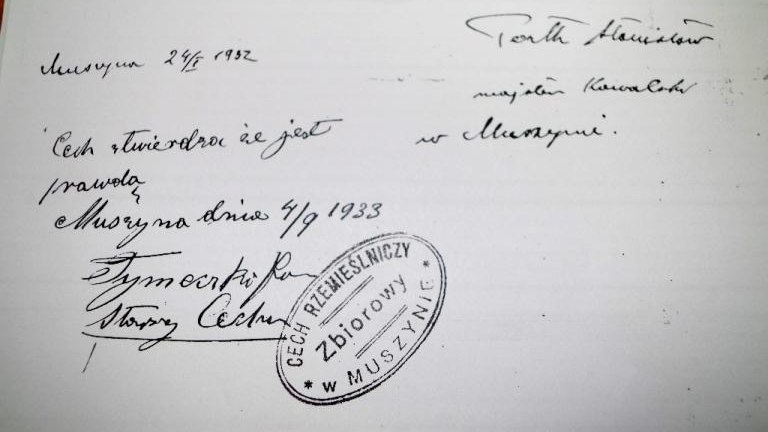 Muszyna 24/I 1932
Stanisław
majster Kowalski
w Muszynie.
Cech stwierdza że jest
prawdą
Muszyna dnia 4/9 1933
Starszy Cechu
CECH RZEMIEŚLNICZY
Zbiorowy
* W MUSZYNIE *